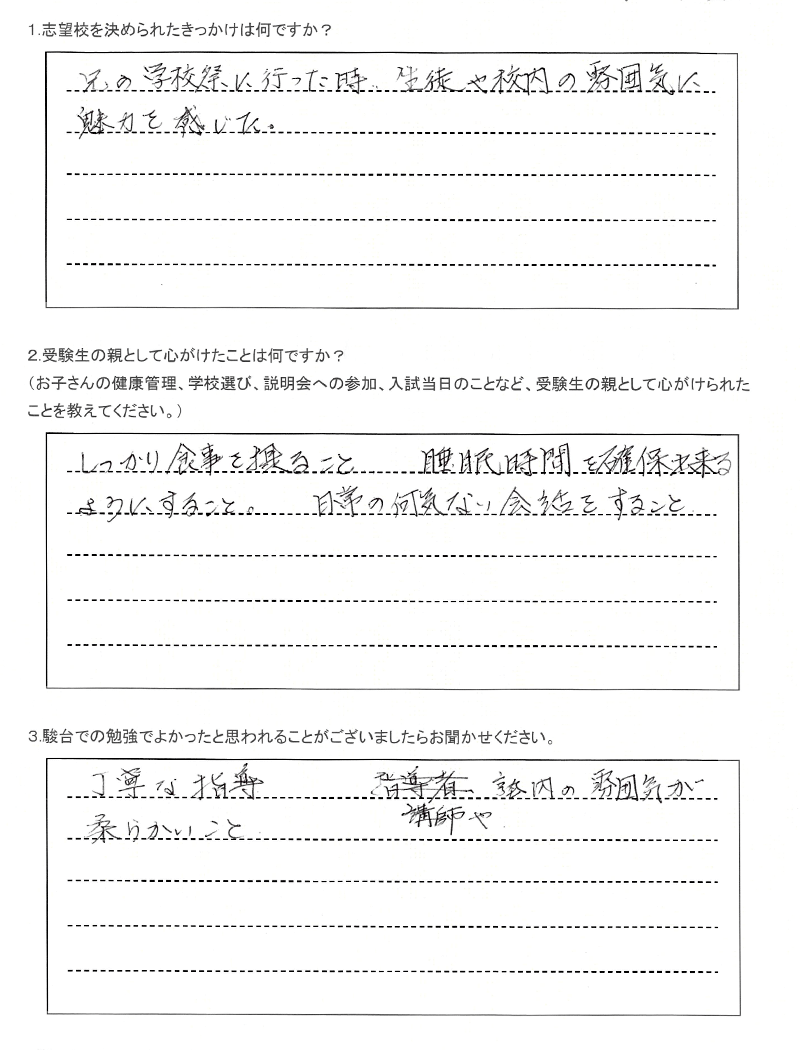 1.志望校を決められたきっかけは何ですか？
兄の学校祭に行った時、生徒や校内の雰囲気に
魅力を感じた。
2.受験生の親として心がけたことは何ですか？
（お子さんの健康管理、学校選び、説明会への参加、入試当日のことなど、受験生の親として心がけられた
ことを教えてください。）
しっかり食事を摂ること 睡眠時間を確保出来る
ようにすること。 日常の何気ない会話をすること
3.駿台での勉強でよかったと思われることがございましたらお聞かせください。
丁寧な指導 指導者、塾内の雰囲気が
講師や
柔らかいこと